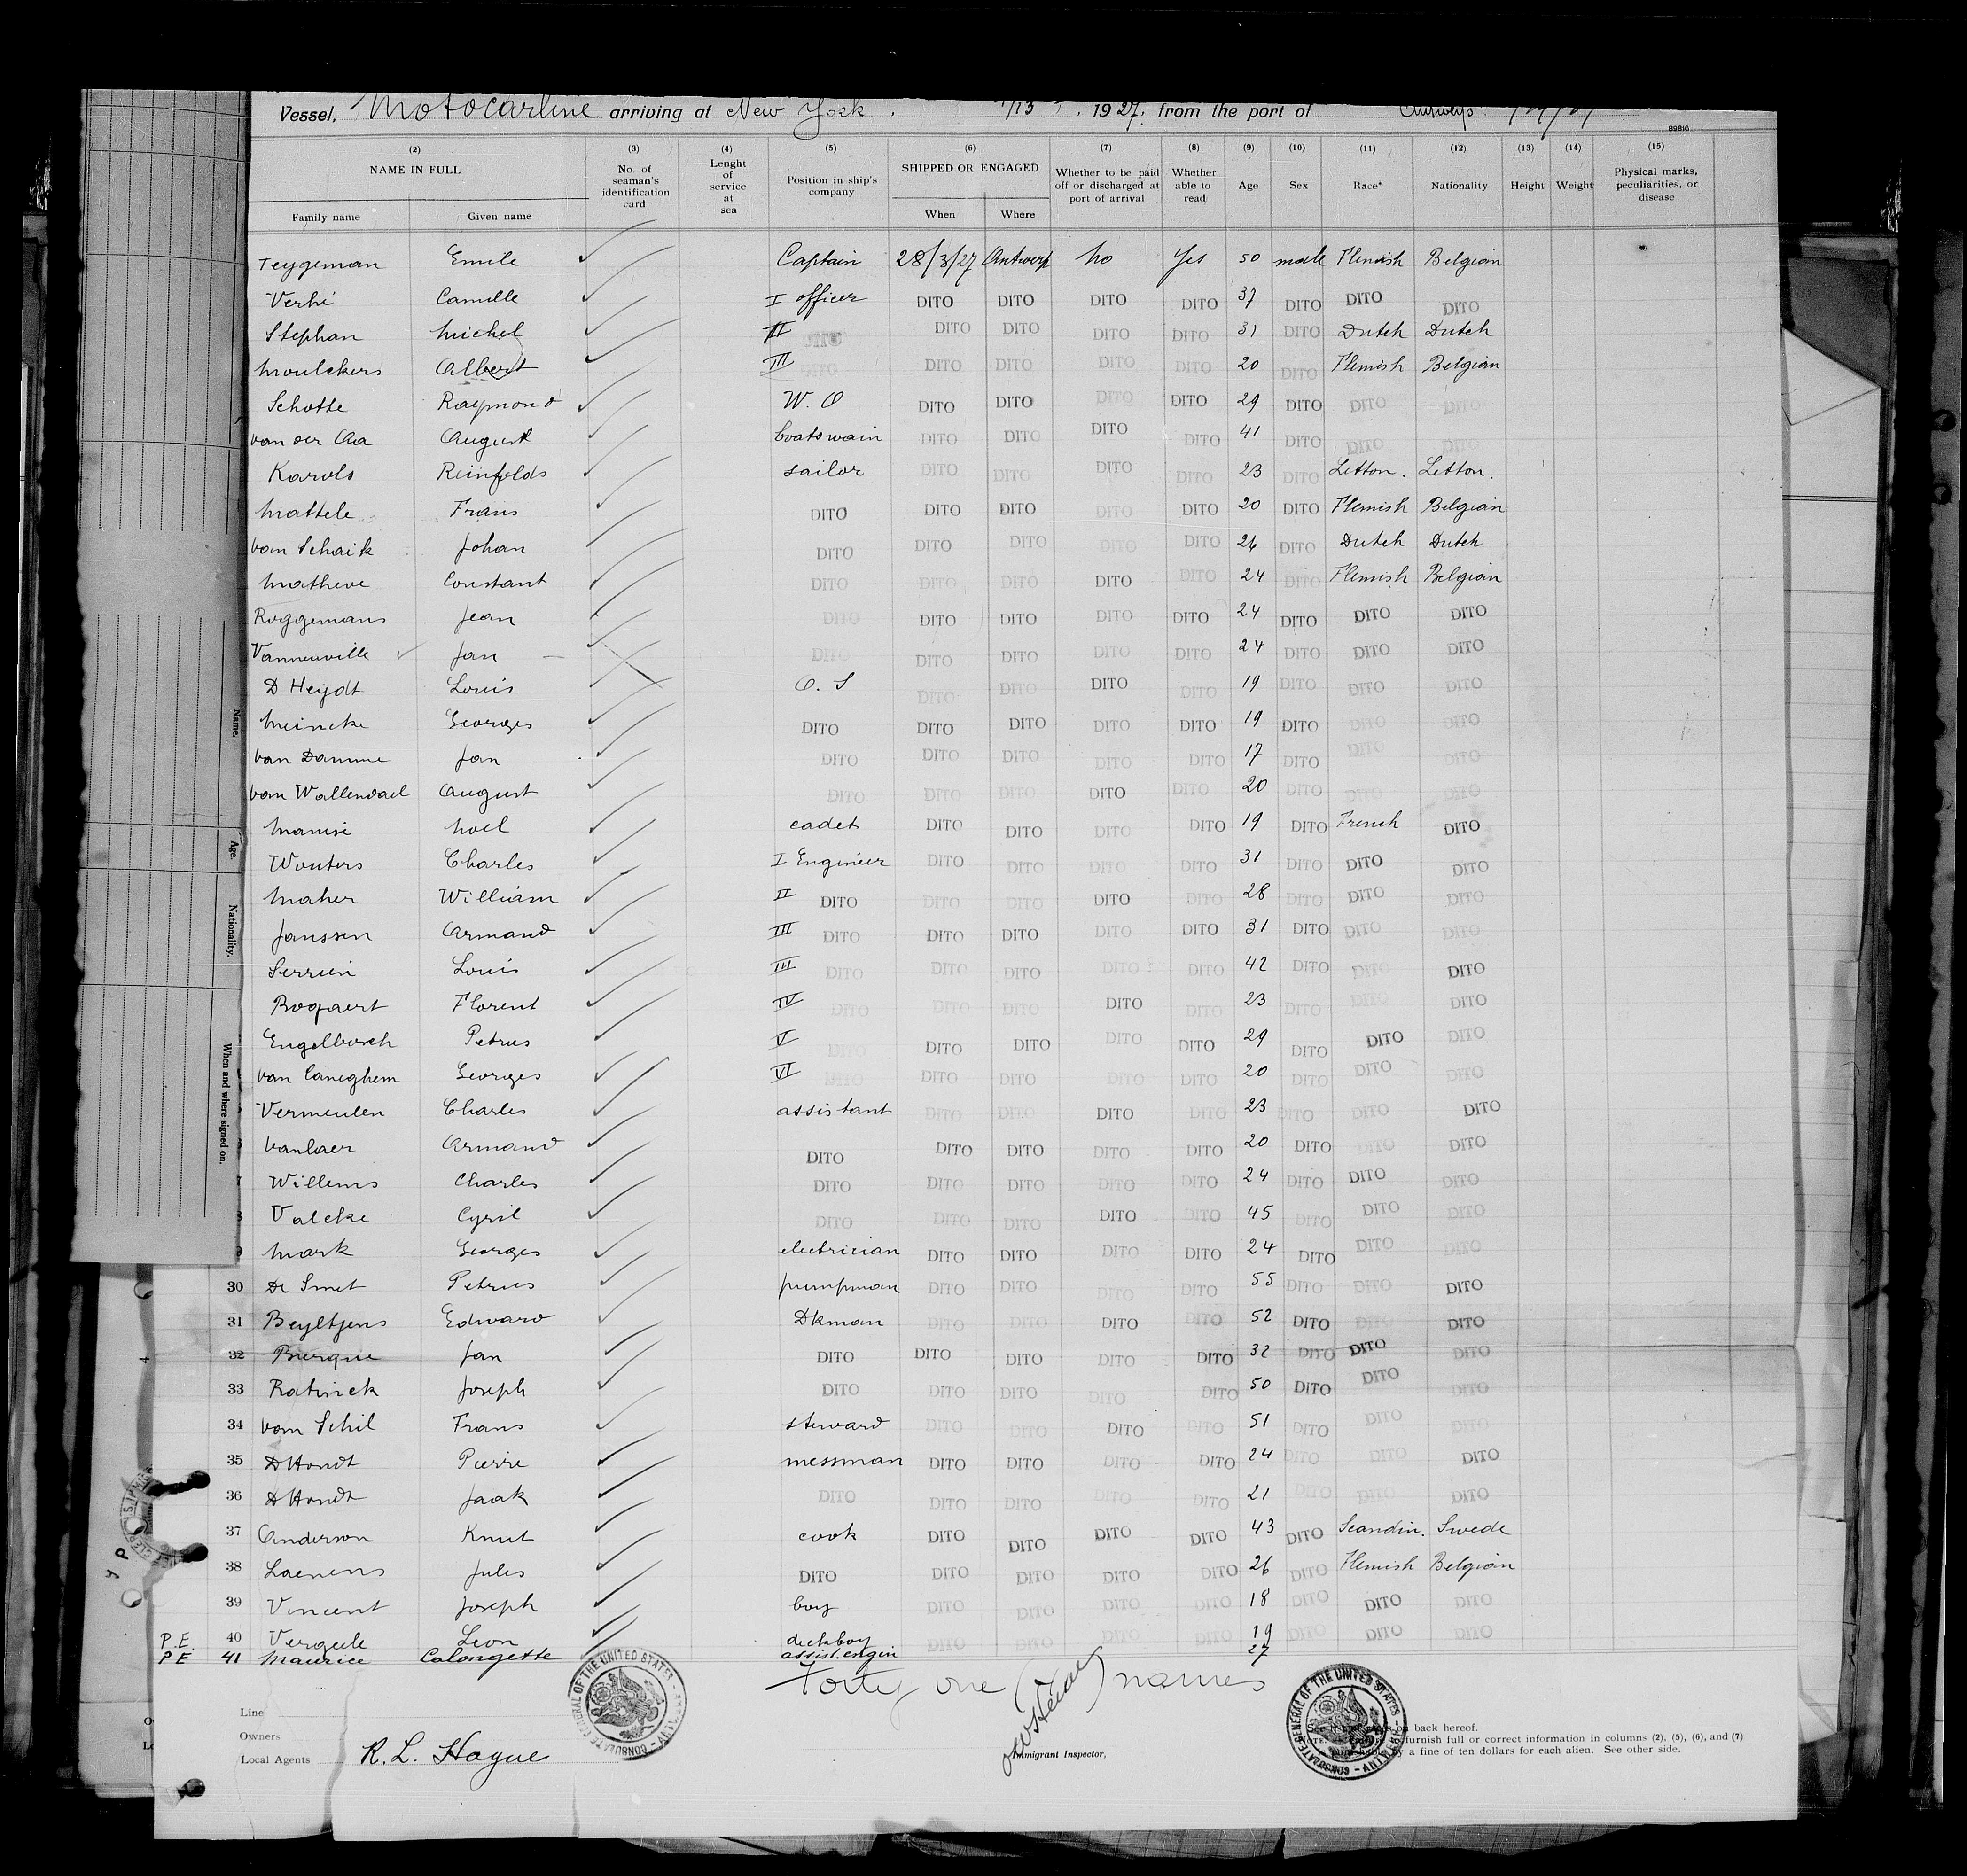 Vessel, Motocarline arriving at New York. 4/13, 1927, from the port of Antwerp
89816
(2) (3) (4) (5) (6) (7) (8) (9) (10) (11) (12) (13) (14) (15)
NAME IN FULL No. of seaman's identification card Lenght of service at sea Position in ship's company SHIPPED OR ENGAGED Whether to be paid off or discharged at port of arrival Whether able to read Age Sex Race* Nationality Height Weight Physical marks, peculiarities, or disease
Family name Given name When Where
Teygeman Emile Captain 28/3/27 Antwerp no Yes 50 male Flemish Belgian
Verhé Camille I officer DITO DITO DITO DITO 37 DITO DITO DITO
Stephan Michel II DITO DITO DITO DITO DITO 31 DITO Dutch Dutch
Moulckers Albert III DITO DITO DITO DITO DITO 20 DITO Flemish Belgian
Schotte Raymond W. O DITO DITO DITO DITO 29 DITO DITO DITO
van der Aa August boatswain DITO DITO DITO DITO 41 DITO DITO DITO
Karols Reinfolds sailor DITO DITO DITO DITO 23 DITO Letton. Letton.
Mattele Frans DITO DITO DITO DITO DITO 20 DITO Flemish Belgian
van Schaik Johan DITO DITO DITO DITO DITO 26 DITO Dutch Dutch
Matheve Constant DITO DITO DITO DITO DITO 24 DITO Flemish Belgian
Roggemans Jean DITO DITO DITO DITO DITO 24 DITO DITO DITO
Vanneuville Jan DITO DITO DITO DITO DITO 24 DITO DITO DITO
D Heydt Louis O. S DITO DITO DITO DITO 19 DITO DITO DITO
Meincke Georges DITO DITO DITO DITO DITO 19 DITO DITO DITO
van Damme Jan DITO DITO DITO DITO DITO 17 DITO DITO DITO
van Wallendael August DITO DITO DITO DITO DITO 20 DITO DITO DITO
Manise Noel cadet DITO DITO DITO DITO 19 DITO French DITO
Wouters Charles I Engineer DITO DITO DITO DITO 31 DITO DITO DITO
Maher William II DITO DITO DITO DITO DITO 28 DITO DITO DITO
Janssen Armand III DITO DITO DITO DITO DITO 31 DITO DITO DITO
Serrien Louis III DITO DITO DITO DITO DITO 42 DITO DITO DITO
Bogaert Florent IV DITO DITO DITO DITO DITO 23 DITO DITO DITO
Engelbosch Petrus V DITO DITO DITO DITO DITO 29 DITO DITO DITO
van Caneghem Georges VI DITO DITO DITO DITO DITO 20 DITO DITO DITO
Vermeulen Charles assistant DITO DITO DITO DITO 23 DITO DITO DITO
Vanlaer Armand DITO DITO DITO DITO DITO 20 DITO DITO DITO
Willems Charles DITO DITO DITO DITO DITO 24 DITO DITO DITO
Valcke Cyril DITO DITO DITO DITO DITO 45 DITO DITO DITO
Mark Georges electrician DITO DITO DITO DITO 24 DITO DITO DITO
30 De Smet Petrus pumpman DITO DITO DITO DITO 55 DITO DITO DITO
31 Beyltjens Edward Dkman DITO DITO DITO DITO 52 DITO DITO DITO
32 Jan DITO DITO DITO DITO DITO 32 DITO DITO DITO
33 Ratinck Joseph DITO DITO DITO DITO DITO 50 DITO DITO DITO
34 van Schil Frans steward DITO DITO DITO DITO 51 DITO DITO DITO
35 D Hondt Pierre messman DITO DITO DITO DITO 24 DITO DITO DITO
36 D Hondt Jaak DITO DITO DITO DITO DITO 21 DITO DITO DITO
37 Anderson Knut cook DITO DITO DITO DITO 43 DITO Scandin. Swede
38 Laenens Jules DITO DITO DITO DITO DITO 26 DITO Flemish Belgian
39 Vincent Joseph boy DITO DITO DITO DITO 18 DITO DITO DITO
P.E. 40 Vergeele Leon deckboy DITO DITO DITO DITO 19 DITO DITO DITO
PE 41 Maurice Calongette assist.engin 27
Forty one ( ) names
Line
Owners
Local Agents R. L. Hague
Immigrant Inspector,
on back hereof.
furnish full or correct information in columns (2), (5), (6), and (7)
by a fine of ten dollars for each alien. See other side.
Name.
Age.
Nationality.
When and where signed on.